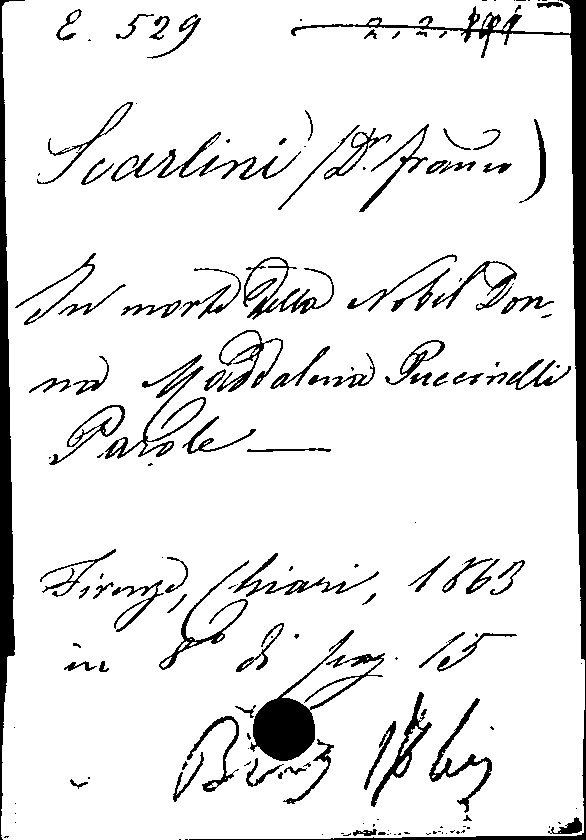 E. 529 2. 2. 191
Scarlini (Dr. Franco)
In morte della Nobil Don-
na Maddalena Puccinelli
Parole —
Firenze, Chiari, 1863
in 8° di pag. 15